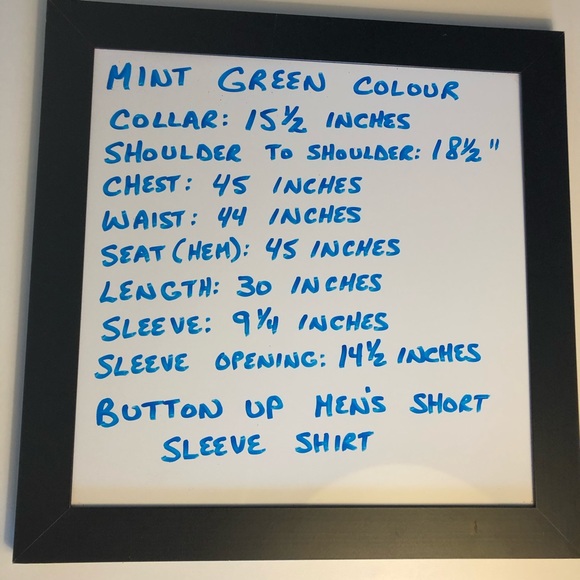 MINT GREEN COLOUR
COLLAR: 15 1/2 INCHES
SHOULDER TO SHOULDER: 18 1/2"
CHEST: 45 INCHES
WAIST: 44 INCHES
SEAT (HEM): 45 INCHES
LENGTH: 30 INCHES
SLEEVE: 9 1/4 INCHES
SLEEVE OPENING: 14 1/2 INCHES
BUTTON UP MEN'S SHORT
SLEEVE SHIRT